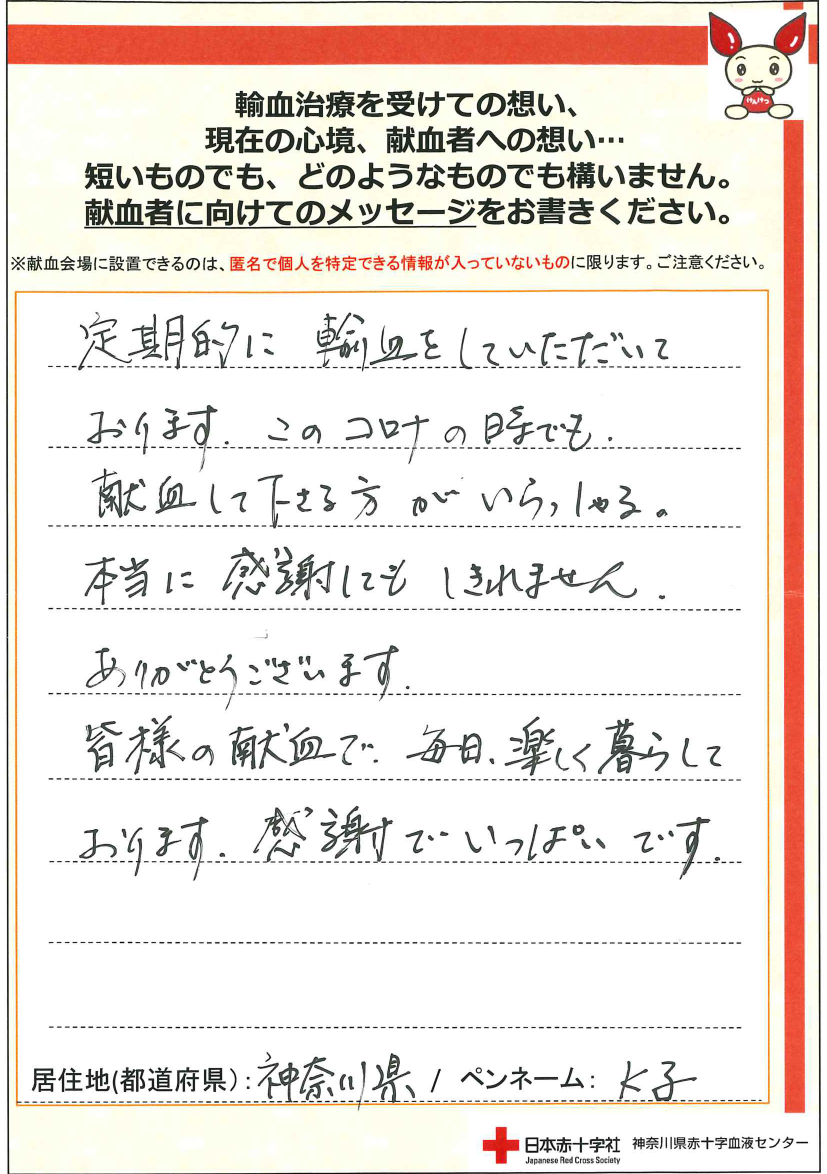 けんけつ
輸血治療を受けての想い、
現在の心境、献血者への想い…
短いものでも、どのようなものでも構いません。
献血者に向けてのメッセージをお書きください。
※献血会場に設置できるのは、匿名で個人を特定できる情報が入っていないものに限ります。ご注意ください。
定期的に 輸血をしていただいて
おります。このコロナの時でも.
献血して下さる方がいらっしゃる。
本当に感謝しても しきれません.
ありがとうございます.
皆様の献血で. 毎日、楽しく暮らして
おります. 感謝でいっぱいです.
居住地(都道府県):神奈川県 / ペンネーム: K子
日本赤十字社 神奈川県赤十字血液センター
Japanese Red Cross Society